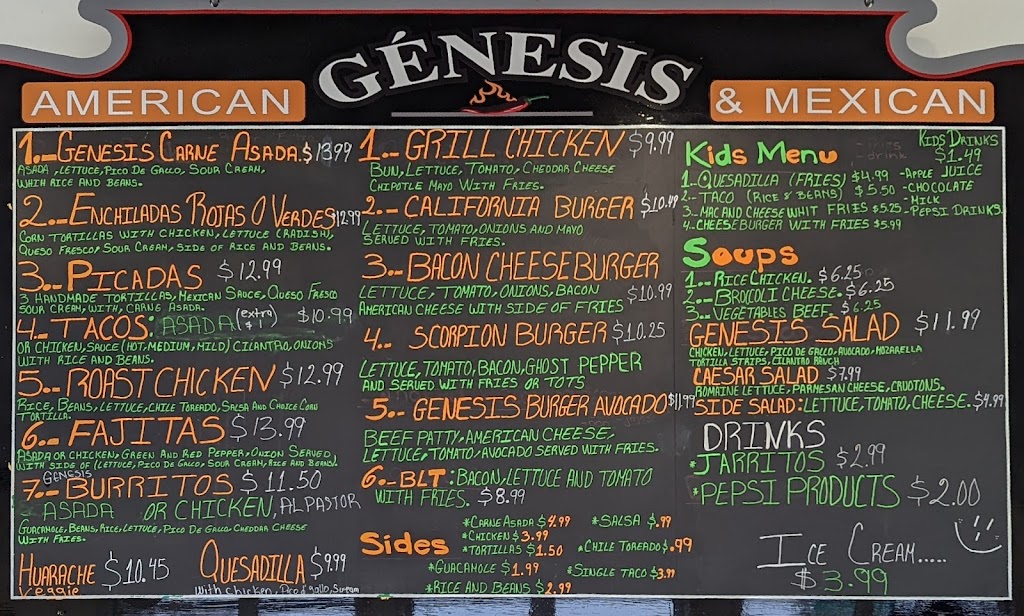 GÉNESIS
AMERICAN
& MEXICAN
1.-GENESIS CARNE ASADA.$13.99
ASADA, LETTUCE, PICO DE GALLO, SOUR CREAM,
WHIH RICE AND BEANS.
2.-ENCHILADAS ROJAS O VERDES $12.99
CORN TORTILLAS WITH CHICKEN, LETTUCE (RADISH,
QUESO FRESCO, SOUR CREAM, SIDE OF RICE AND BEANS.
3.-PICADAS $12.99
3 HANDMADE TORTILLAS, MEXICAN SAUCE, QUESO FRESCO
SOUR CREAM, WITH, CARNE ASADA.
4.-TACOS: ASADA (extra $1) $10.99
OR CHICKEN, SAUCE (HOT, MEDIUM, MILD) CILANTRO, ONIONS
WITH RICE AND BEANS.
5.-ROAST CHICKEN $12.99
RICE, BEANS, LETTUCE, CHILE TOREADO, SALSA AND CHOICE CORN
TORTILLA.
6.-FAJITAS $13.99
ASADA OR CHICKEN, GREEN AND RED PEPPER, ONION SERVED
WITH SIDE OF (LETTUCE, PICO DE GALLO, SOUR CREAM, RICE AND BEANS).
GENESIS
7.-BURRITOS $11.50
ASADA OR CHICKEN, AL PASTOR
GUACAMOLE, BEANS, RICE, LETTUCE, PICO DE GALLO, CHEDDAR CHEESE
WITH FRIES.
HUARACHE $10.45
Veggie
QUESADILLA $9.99
With chicken, Pico d gallo, Scream
1.-GRILL CHICKEN $9.99
BUN, LETTUCE, TOMATO, CHEDDAR CHEESE
CHIPOTLE MAYO WITH FRIES.
2.-CALIFORNIA BURGER $10.49
LETTUCE, TOMATO, ONIONS AND MAYO
SERVED WITH FRIES.
3.-BACON CHEESEBURGER
LETTUCE, TOMATO, ONIONS, BACON $10.99
AMERICAN CHEESE WITH SIDE OF FRIES
4.. SCORPION BURGER $10.25
LETTUCE, TOMATO, BACON, GHOST PEPPER
AND SERVED WITH FRIES OR TOTS
5.-GENESIS BURGER AVOCADO $11.99
BEEF PATTY, AMERICAN CHEESE,
LETTUCE, TOMATO, AVOCADO SERVED WITH FRIES.
6.-BLT: BACON, LETTUCE AND TOMATO
WITH FRIES. $8.99
Sides
*CARNE ASADA $4.99
*CHICKEN $3.99
*TORTILLAS $1.50
*GUACAMOLE $1.99
*RICE AND BEANS $2.99
*SALSA $.99
*CHILE TOREADO $.99
*SINGLE TACO $3.99
Kids Menu
1.-QUESADILLA (FRIES) $4.99
2.-TACO (RICE & BEANS) $5.50
3.-MAC AND CHEESE WHIT FRIES $5.25
4.-CHEESEBURGER WITH FRIES $5.99
KIDS DRINKS
$1.49
-APPLE JUICE
-CHOCOLATE
-MILK
-PEPSI DRINKS
Soups
1.-RICE CHICKEN. $6.25
2.-BROCOLI CHEESE. $6.25
3.-VEGETABLES BEEF. $6.25
GENESIS SALAD $11.99
CHICKEN, LETTUCE, PICO DE GALLO, AVOCADO, MOZARELLA
TORTILLA STRIPS, CILANTRO RANCH
CAESAR SALAD $7.99
ROMAINE LETTUCE, PARMESAN CHEESE, CRUOTONS.
SIDE SALAD: LETTUCE, TOMATO, CHEESE. $4.99
DRINKS
*JARRITOS $2.99
*PEPSI PRODUCTS $2.00
ICE CREAM.....
$3.99